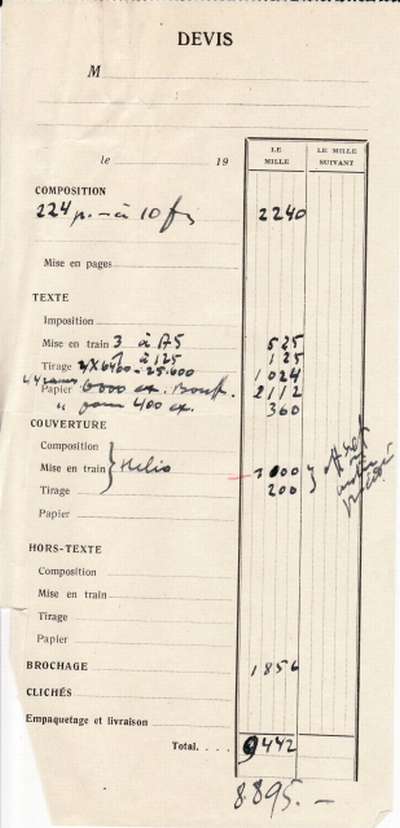 DEVIS
M
le 19
LE MILLE LE MILLE SUIVANT
COMPOSITION
224 p. - à 10 fs 2240
Mise en pages
TEXTE
Imposition
Mise en train 3 à 175 525
1 à 125 125
Tirage 4 X 6400 = 25.600 1024
Papier 6000 ex. Bouff. 2112
" pour 400 ex. 360
COUVERTURE
Composition
Mise en train } Hélio 1000
Tirage 200
Papier
HORS-TEXTE
Composition
Mise en train
Tirage
Papier
BROCHAGE 1856
CLICHÉS
Empaquetage et livraison
Total. . . . 9442
8.895.-